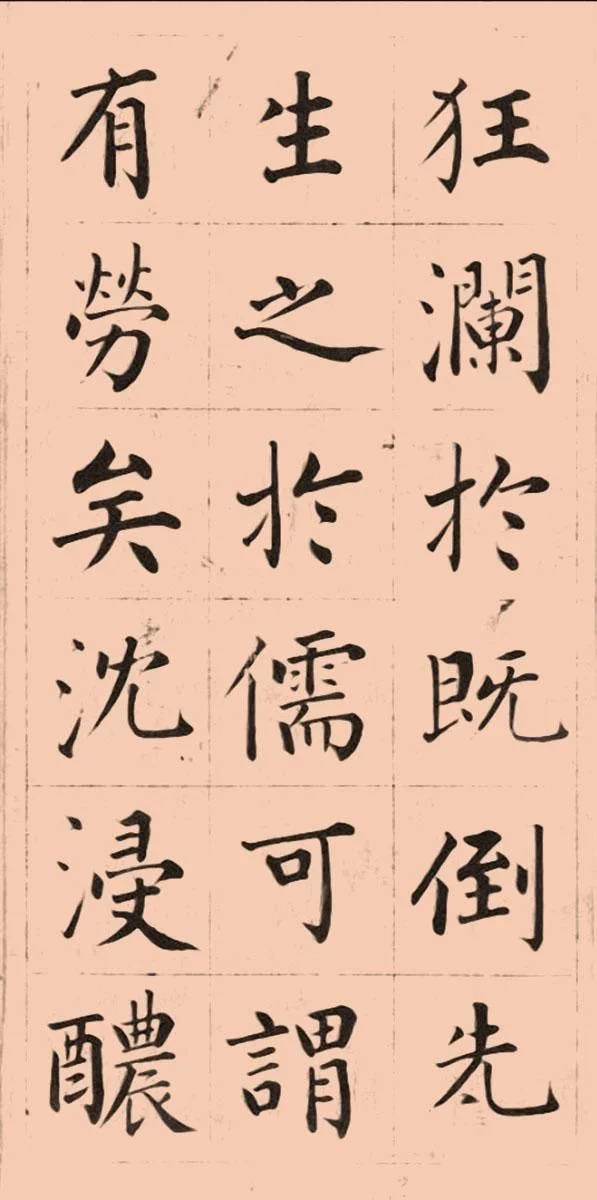 狂瀾於既倒先
生之於儒可謂
有勞矣沈浸醲